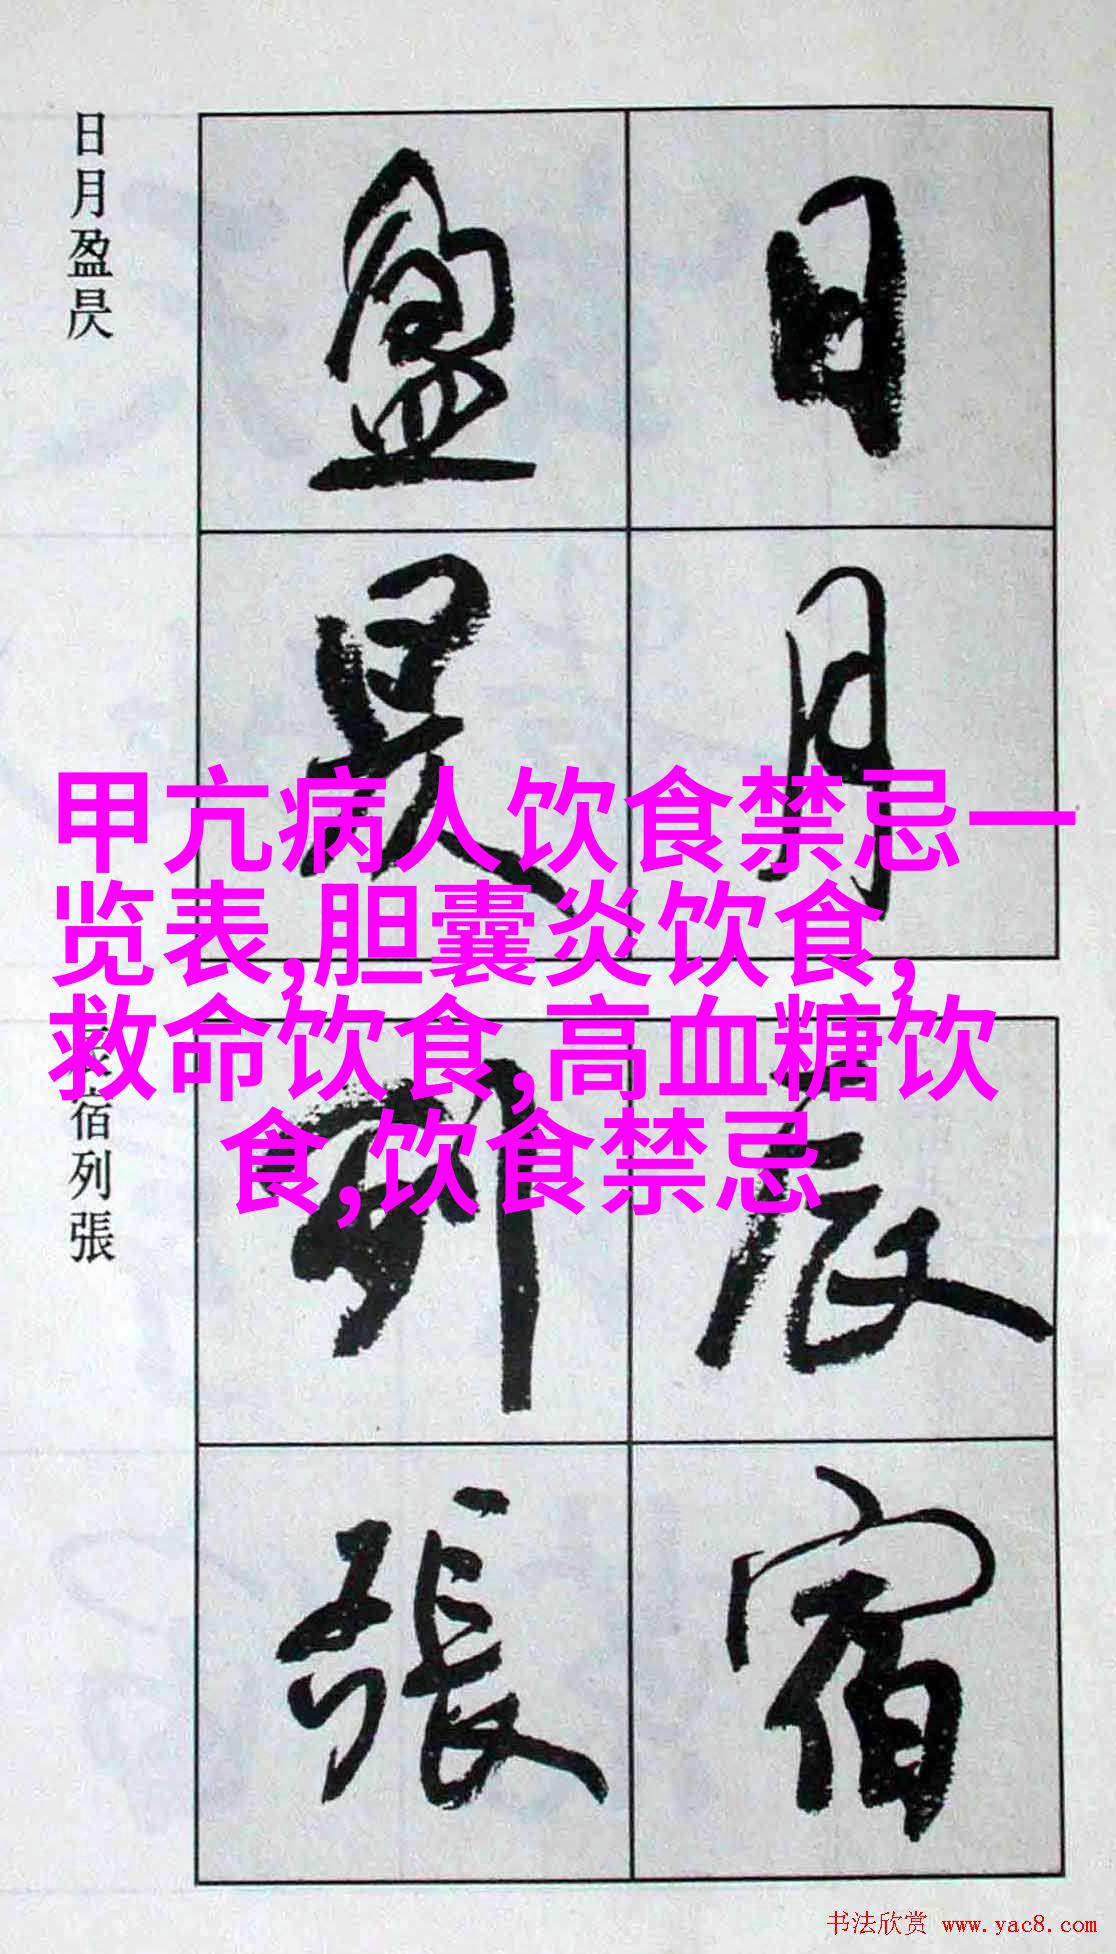 日月
盈昃
日月盈昃
甲亢病人饮食禁忌一
览表,胆囊炎饮食,
救命饮食,高血糖饮
食,饮食禁忌
辰宿
列張
宿列張
书法欣赏 www.yac8.com